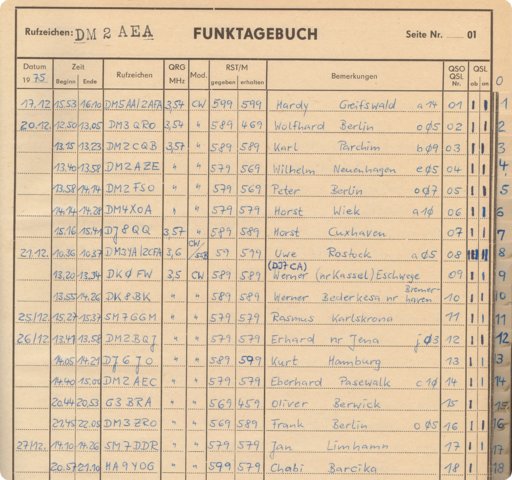 Rufzeichen: DM 2 AEA FUNKTAGEBUCH Seite Nr. 01
Datum Zeit Rufzeichen QRG Mod. RST/M Bemerkungen QSO QSL
1975 Beginn Ende MHz gegeben erhalten QSL Nr. ab an 0
17.12 15.53 16.10 DM5AA/2AFA 3,54 CW 599 599 Hardy Greifswald a14 01 1
20.12. 12.50 13.05 DM3QRO 3,54 " 589 469 Wolfhard Berlin oØ5 02 2
13.15 13.23 DM2CQB 3,57 " 589 589 Karl Parchim bØ9 03 3
13.40 13.58 DM2AZE " " 579 569 Wilhelm Neuenhagen eØ5 04 4
13.58 14.14 DM2FSO " " 579 569 Peter Berlin oØ7 05 5
14.14 14.28 DM4XOA " " 579 579 Horst Wiek a1Ø 06 6
15.16 15.41 DJ8QQ 3,57 " 589 579 Horst Cuxhaven 07 7
21.12. 10.36 10.57 DM3YA/2CFA 3,6 CW/SSB 59 579 Uwe Rostock aØ5 08 8
13.20 13.34 DKØFW 3,5 CW 589 589 (DJ7CA) Werner (nr Kassel) Eschwege 09 9
13.55 14.26 DK8BK " " 589 589 Werner Bederkesa nr Bremerhaven 10 10
25.12. 15.27 15.37 SM7GGM " " 579 579 Rasmus Karlskrona 11 11
26.12. 13.41 13.58 DM2BQJ " " 579 579 Erhard nr Jena jØ3 12 12
14.05 14.21 DJ6JO " " 589 599 Kurt Hamburg 13 13
14.40 15.00 DM2AEC " " 579 579 Eberhard Pasewalk c1Ø 14 14
20.44 20.53 G3BRA " " 569 459 Oliver Berwick 15 15
21.45 22.05 DM3ZRO " " 569 589 Frank Berlin oØ5 16 16
27.12. 14.10 14.26 SM7DDR " " 579 579 Jan Limhamn 17 17
20.57 21.10 HA9YOG " " 599 579 Chabi Barcika 18 18